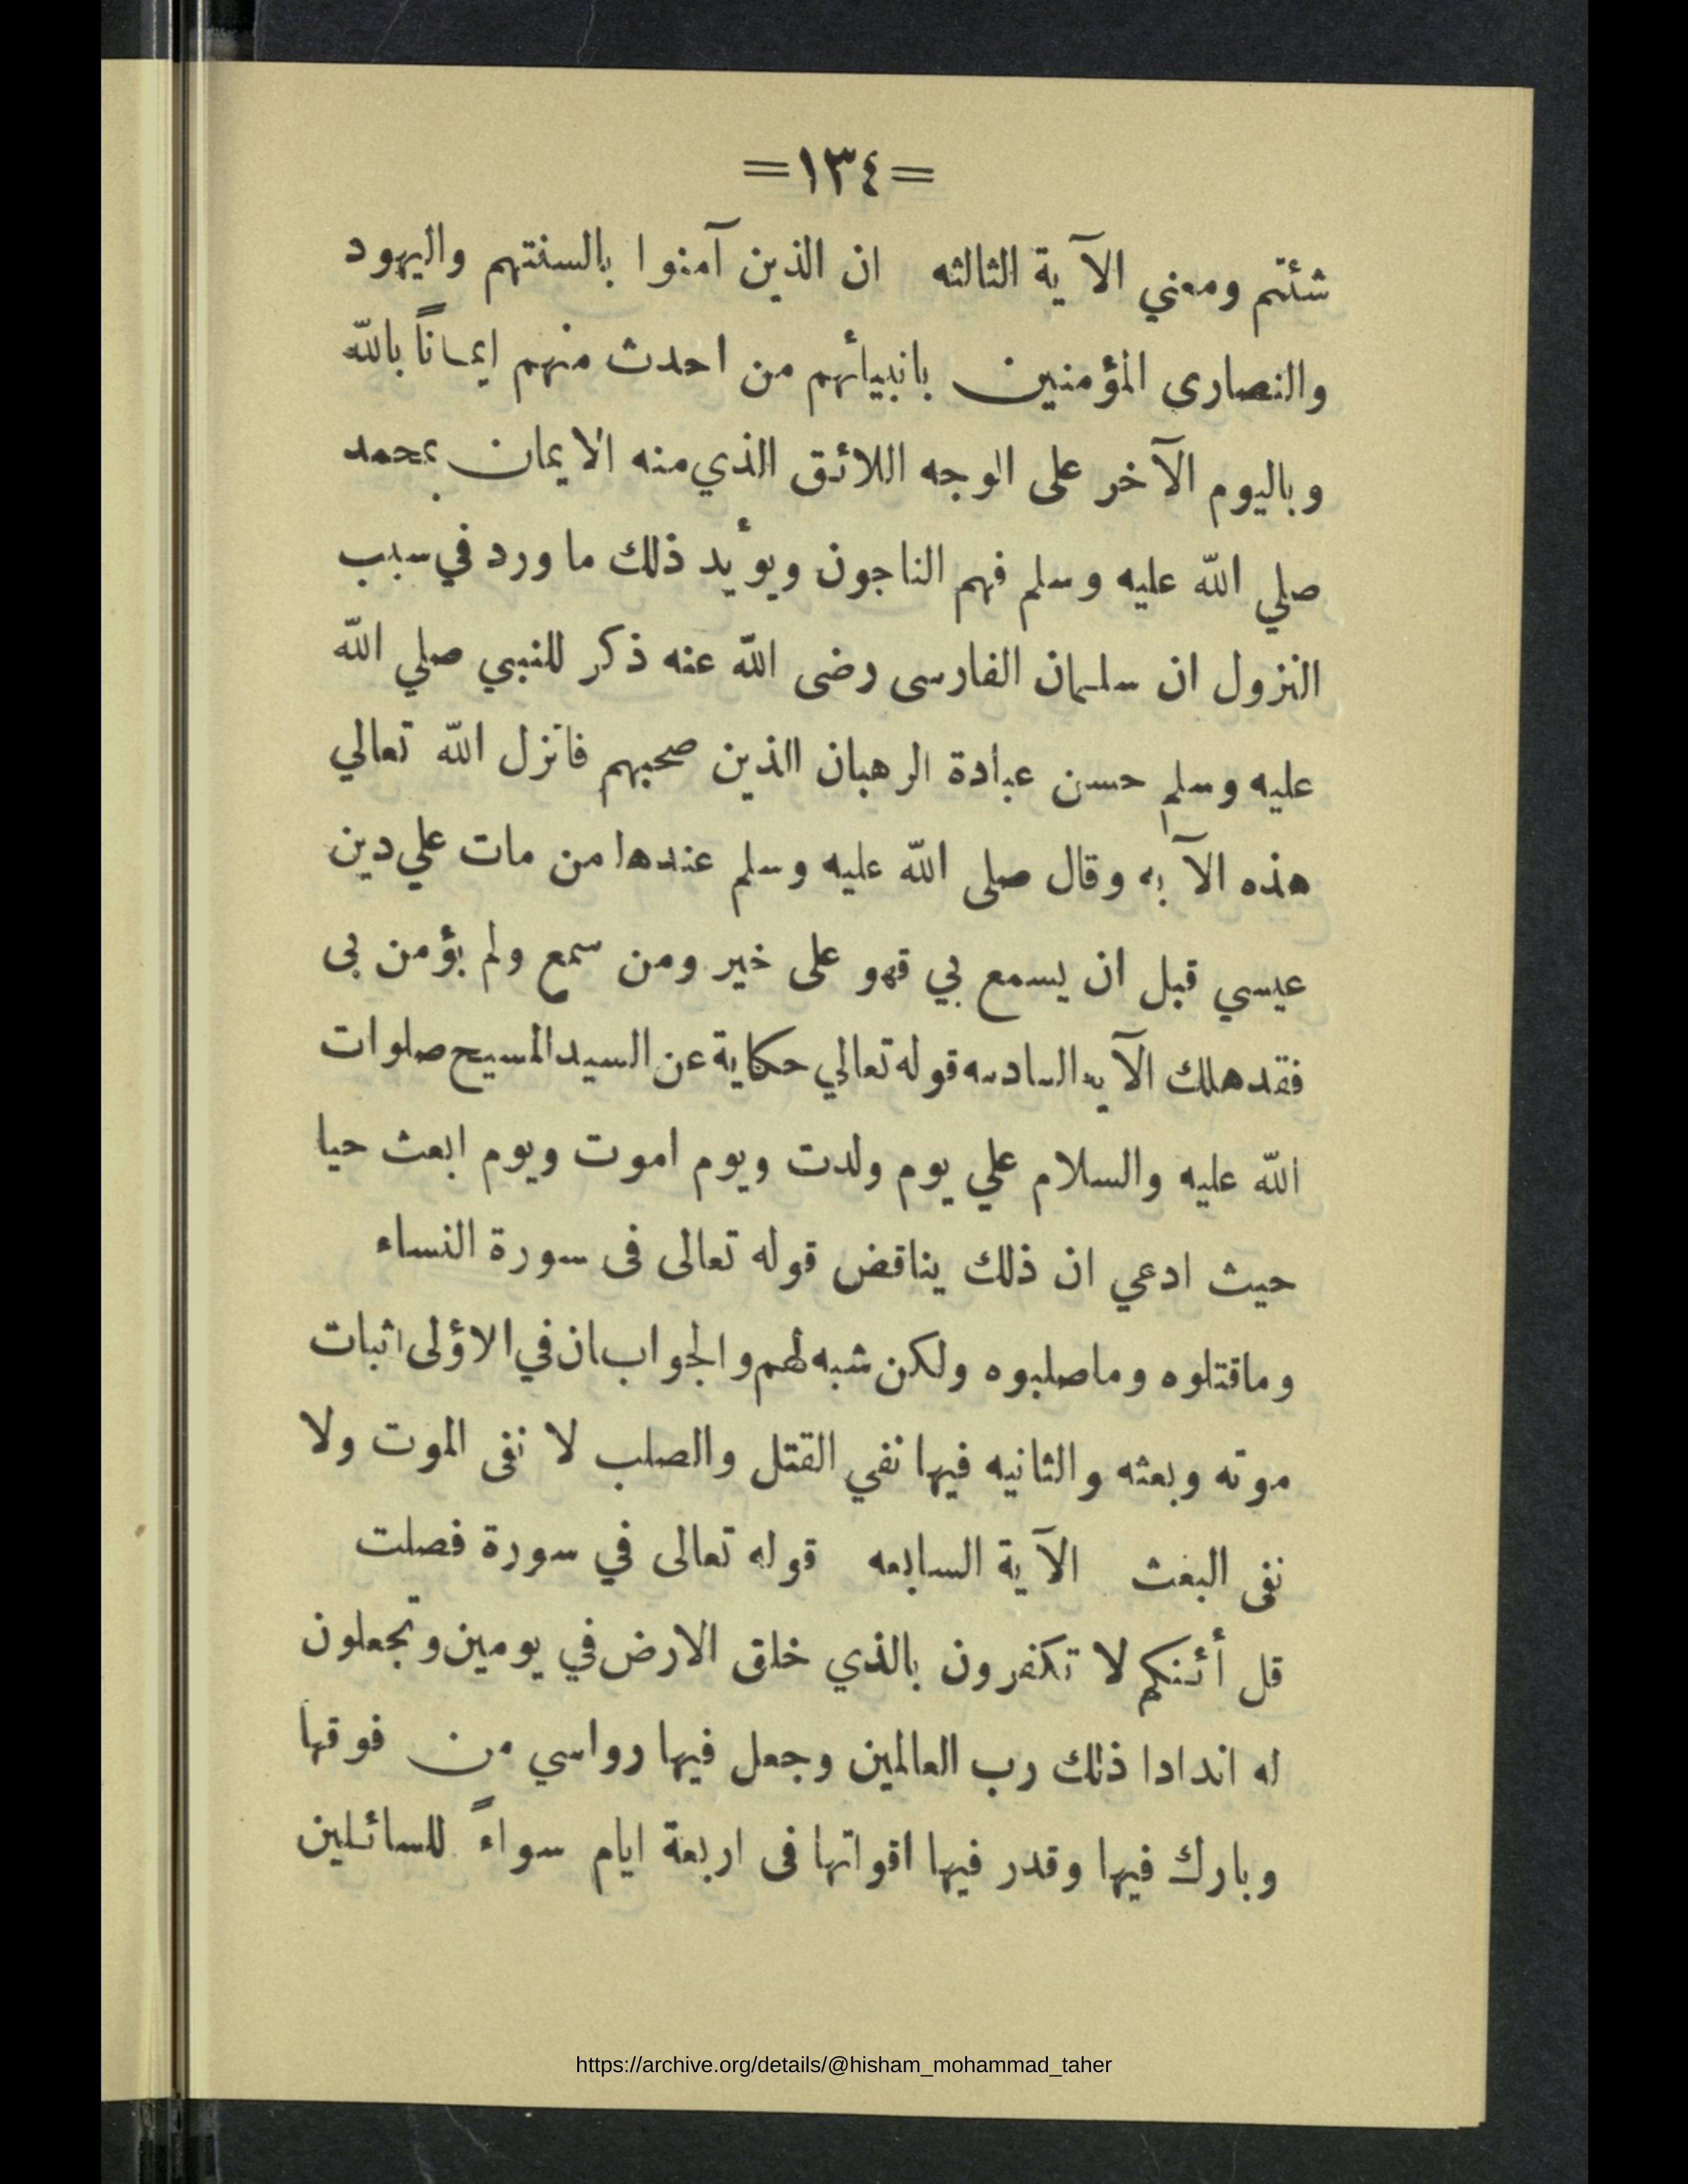 =١٣٤=
شئتم ومعني الآية الثالثه ان الذين آمنوا بالسنتهم واليهود
والنصارى المؤمنين بانبيائهم من احدث منهم ايماناً بالله
وباليوم الآخر على الوجه اللائق الذي منه الايمان بمحمد
صلي الله عليه وسلم فهم الناجون ويؤيد ذلك ما ورد في سبب
النزول ان سلمان الفارسى رضى الله عنه ذكر للنبي صلي الله
عليه وسلم حسن عبادة الرهبان الذين صحبهم فانزل الله تعالي
هذه الآيه وقال صلى الله عليه وسلم عندها من مات علي دين
عيسي قبل ان يسمع بي قهو على خير ومن سمع ولم يؤمن بى
فقد هلك الآيه السادسه قوله تعالي حكاية عن السيد المسيح صلوات
الله عليه والسلام علي يوم ولدت ويوم اموت ويوم ابعث حيا
حيث ادعي ان ذلك يناقض قوله تعالى فى سورة النساء
وماقتلوه وماصلبوه ولكن شبه لهم والجواب ان في الاؤلى اثبات
موته وبعثه والثانيه فيها نفي القتل والصلب لا نفى الموت ولا
نفى البعث الآية السابعه قوله تعالى في سورة فصلت
قل أئنكم لا تكفرون بالذي خلق الارض في يومين وتجعلون
له اندادا ذلك رب العالمين وجعل فيها رواسي من فوقها
وبارك فيها وقدر فيها اقواتها فى اربعة ايام سواءً للسائلين
https://archive.org/details/@hisham_mohammad_taher